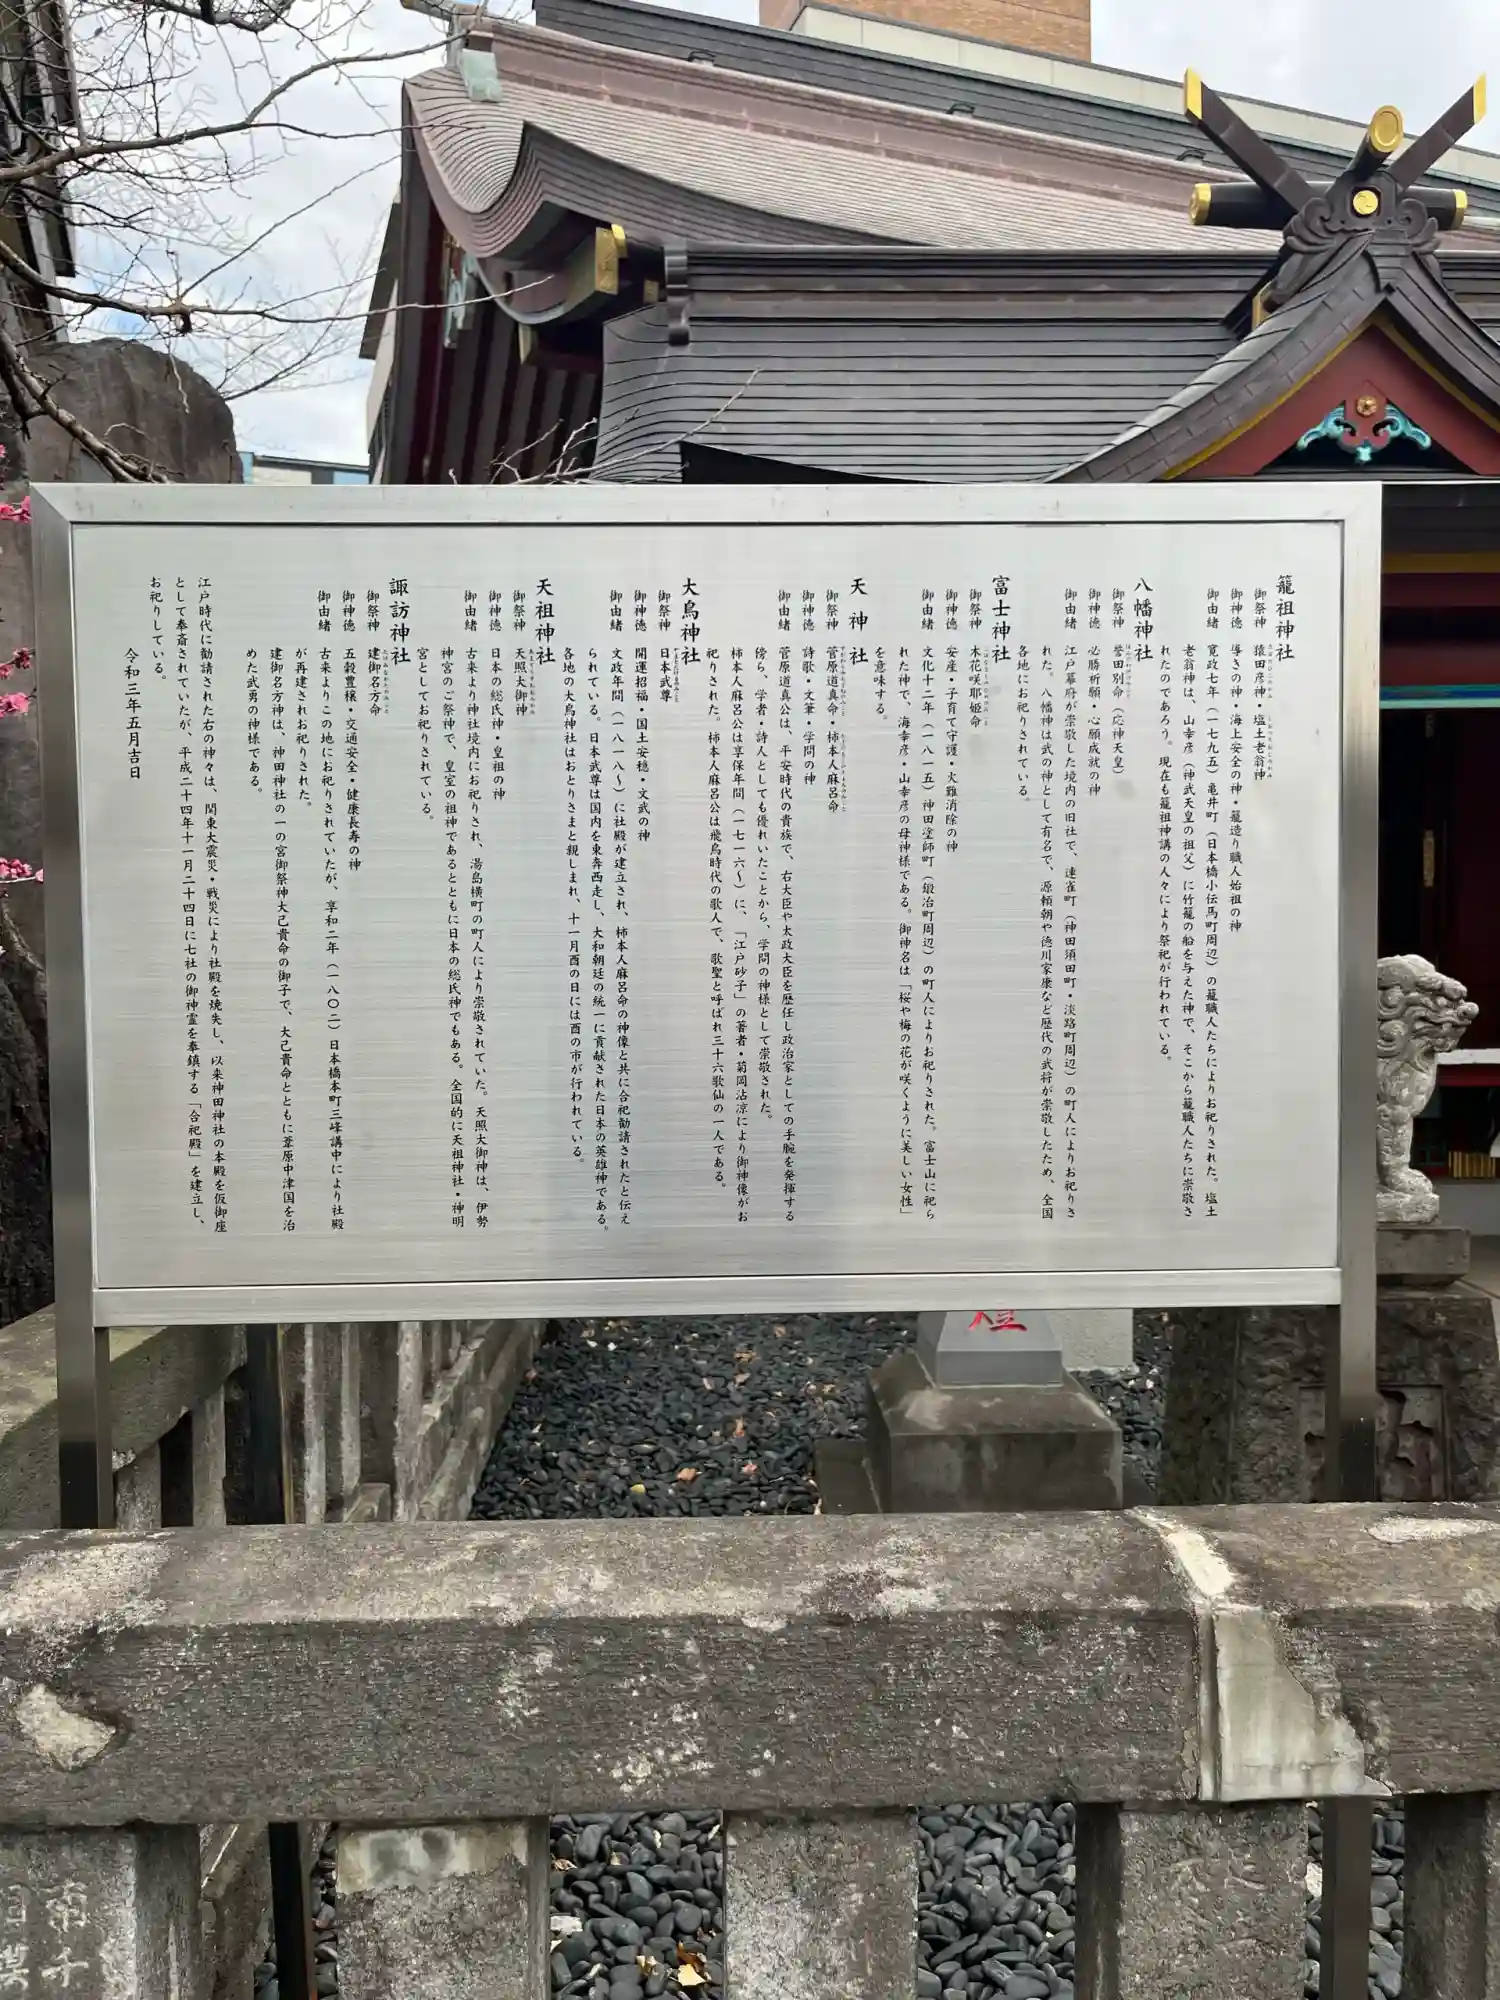 籠祖神社
御祭神　猿田彦神・塩土老翁神
御神徳　導きの神・海上安全の神・籠造り職人始祖の神
御由緒　寛政七年（一七九五）亀井町（日本橋小伝馬町周辺）の籠職人たちによりお祀りされた。塩土
老翁神は、山幸彦（神武天皇の祖父）に竹籠の船を与えた神で、そこから籠職人たちに崇敬さ
れたのであろう。現在も籠祖神講の人々により祭祀が行われている。
八幡神社
御祭神　誉田別命（応神天皇）
御神徳　必勝祈願・心願成就の神
御由緒　江戸幕府が崇敬した境内の旧社で、連雀町（神田須田町・淡路町周辺）の町人によりお祀りさ
れた。八幡神は武の神として有名で、源頼朝や徳川家康など歴代の武将が崇敬したため、全国
各地にお祀りされている。
富士神社
御祭神　木花咲耶姫命
御神徳　安産・子育て守護・火難消除の神
御由緒　文化十二年（一八一五）神田塗師町（鍛冶町周辺）の町人によりお祀りされた。富士山に祀ら
れた神で、海幸彦・山幸彦の母神様である。御神名は「桜や梅の花が咲くように美しい女性」
を意味する。
天神社
御祭神　菅原道真命・柿本人麻呂命
御神徳　詩歌・文筆・学問の神
御由緒　菅原道真公は、平安時代の貴族で、右大臣や太政大臣を歴任し政治家としての手腕を発揮する
傍ら、学者・詩人としても優れいたことから、学問の神様として崇敬された。
柿本人麻呂公は享保年間（一七一六〜）に、「江戸砂子」の著者・菊岡沾凉により御神像がお
祀りされた。柿本人麻呂公は飛鳥時代の歌人で、歌聖と呼ばれ三十六歌仙の一人である。
大鳥神社
御祭神　日本武尊
御神徳　開運招福・国土安穏・文武の神
御由緒　文政年間（一八一八〜）に社殿が建立され、柿本人麻呂命の神像と共に合祀勧請されたと伝え
られている。日本武尊は国内を東奔西走し、大和朝廷の統一に貢献された日本の英雄神である。
各地の大鳥神社はおとりさまと親しまれ、十一月酉の日には酉の市が行われている。
天祖神社
御祭神　天照大御神
御神徳　日本の総氏神・皇祖の神
御由緒　古来より神社境内にお祀りされ、湯島横町の町人により崇敬されていた。天照大御神は、伊勢
神宮のご祭神で、皇室の祖神であるとともに日本の総氏神でもある。全国的に天祖神社・神明
宮としてお祀りされている。
諏訪神社
御祭神　建御名方命
御神徳　五穀豊穣・交通安全・健康長寿の神
御由緒　古来よりこの地にお祀りされていたが、享和二年（一八〇二）日本橋本町三峰講中により社殿
が再建されお祀りされた。
建御名方神は、神田神社の一の宮御祭神大己貴命の御子で、大己貴命とともに葦原中津国を治
めた武勇の神様である。
江戸時代に勧請された右の神々は、関東大震災・戦災により社殿を焼失し、以来神田神社の本殿を仮御座
として奉斎されていたが、平成二十四年十一月二十四日に七社の御神霊を奉鎮する「合祀殿」を建立し、
お祀りしている。
令和三年五月吉日